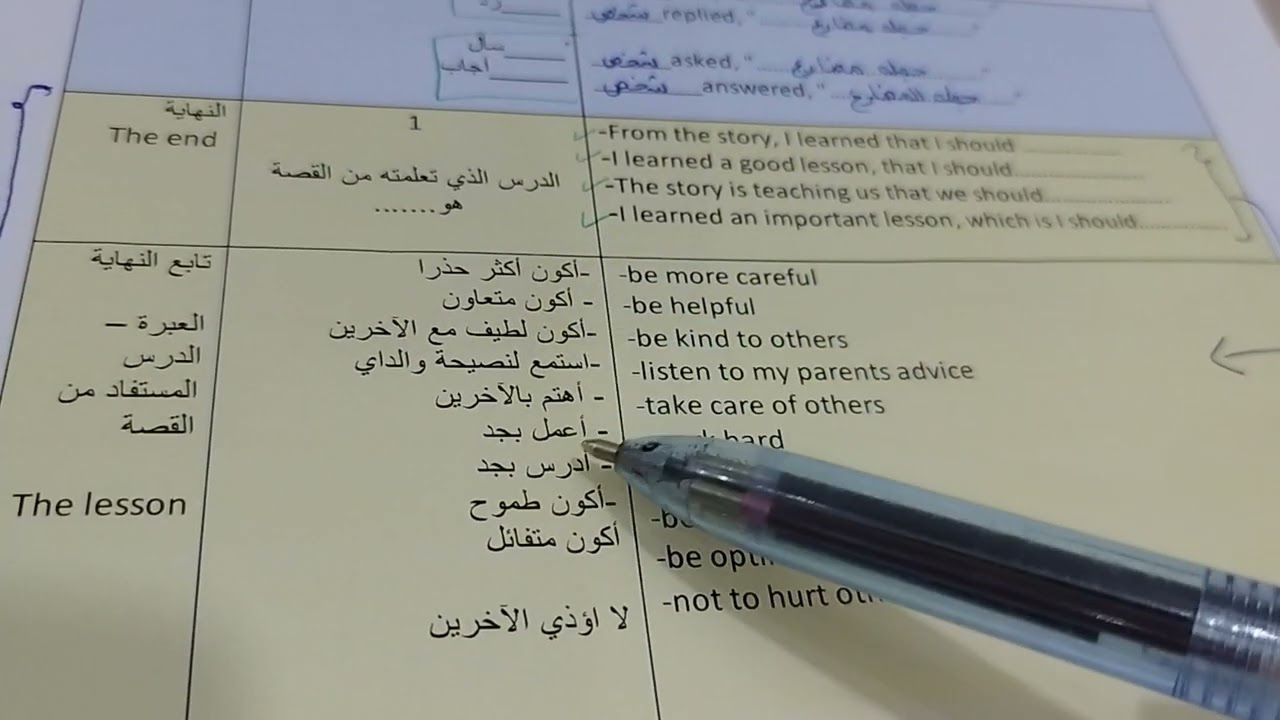 رد
شخص replied, "..... جمله مضارع ....."
سأل
شخص asked, "..... جمله مضارع ....."
أجاب
شخص answered, "... جمله المضارع ..."
النهاية
The end
1
الدرس الذي تعلمته من القصة
هو.......
-From the story, I learned that I should
-I learned a good lesson, that I should
-The story is teaching us that we should
-I learned an important lesson, which is I should
تابع النهاية
العبرة –
الدرس
المستفاد من
القصة
The lesson
-أكون أكثر حذرا
- أكون متعاون
-أكون لطيف مع الآخرين
-استمع لنصيحة والداي
- أهتم بالآخرين
- أعمل بجد
- أدرس بجد
-أكون طموح
أكون متفائل
لا اؤذي الآخرين
-be more careful
-be helpful
-be kind to others
-listen to my parents advice
-take care of others
hard
-be
-be
-not to hurt